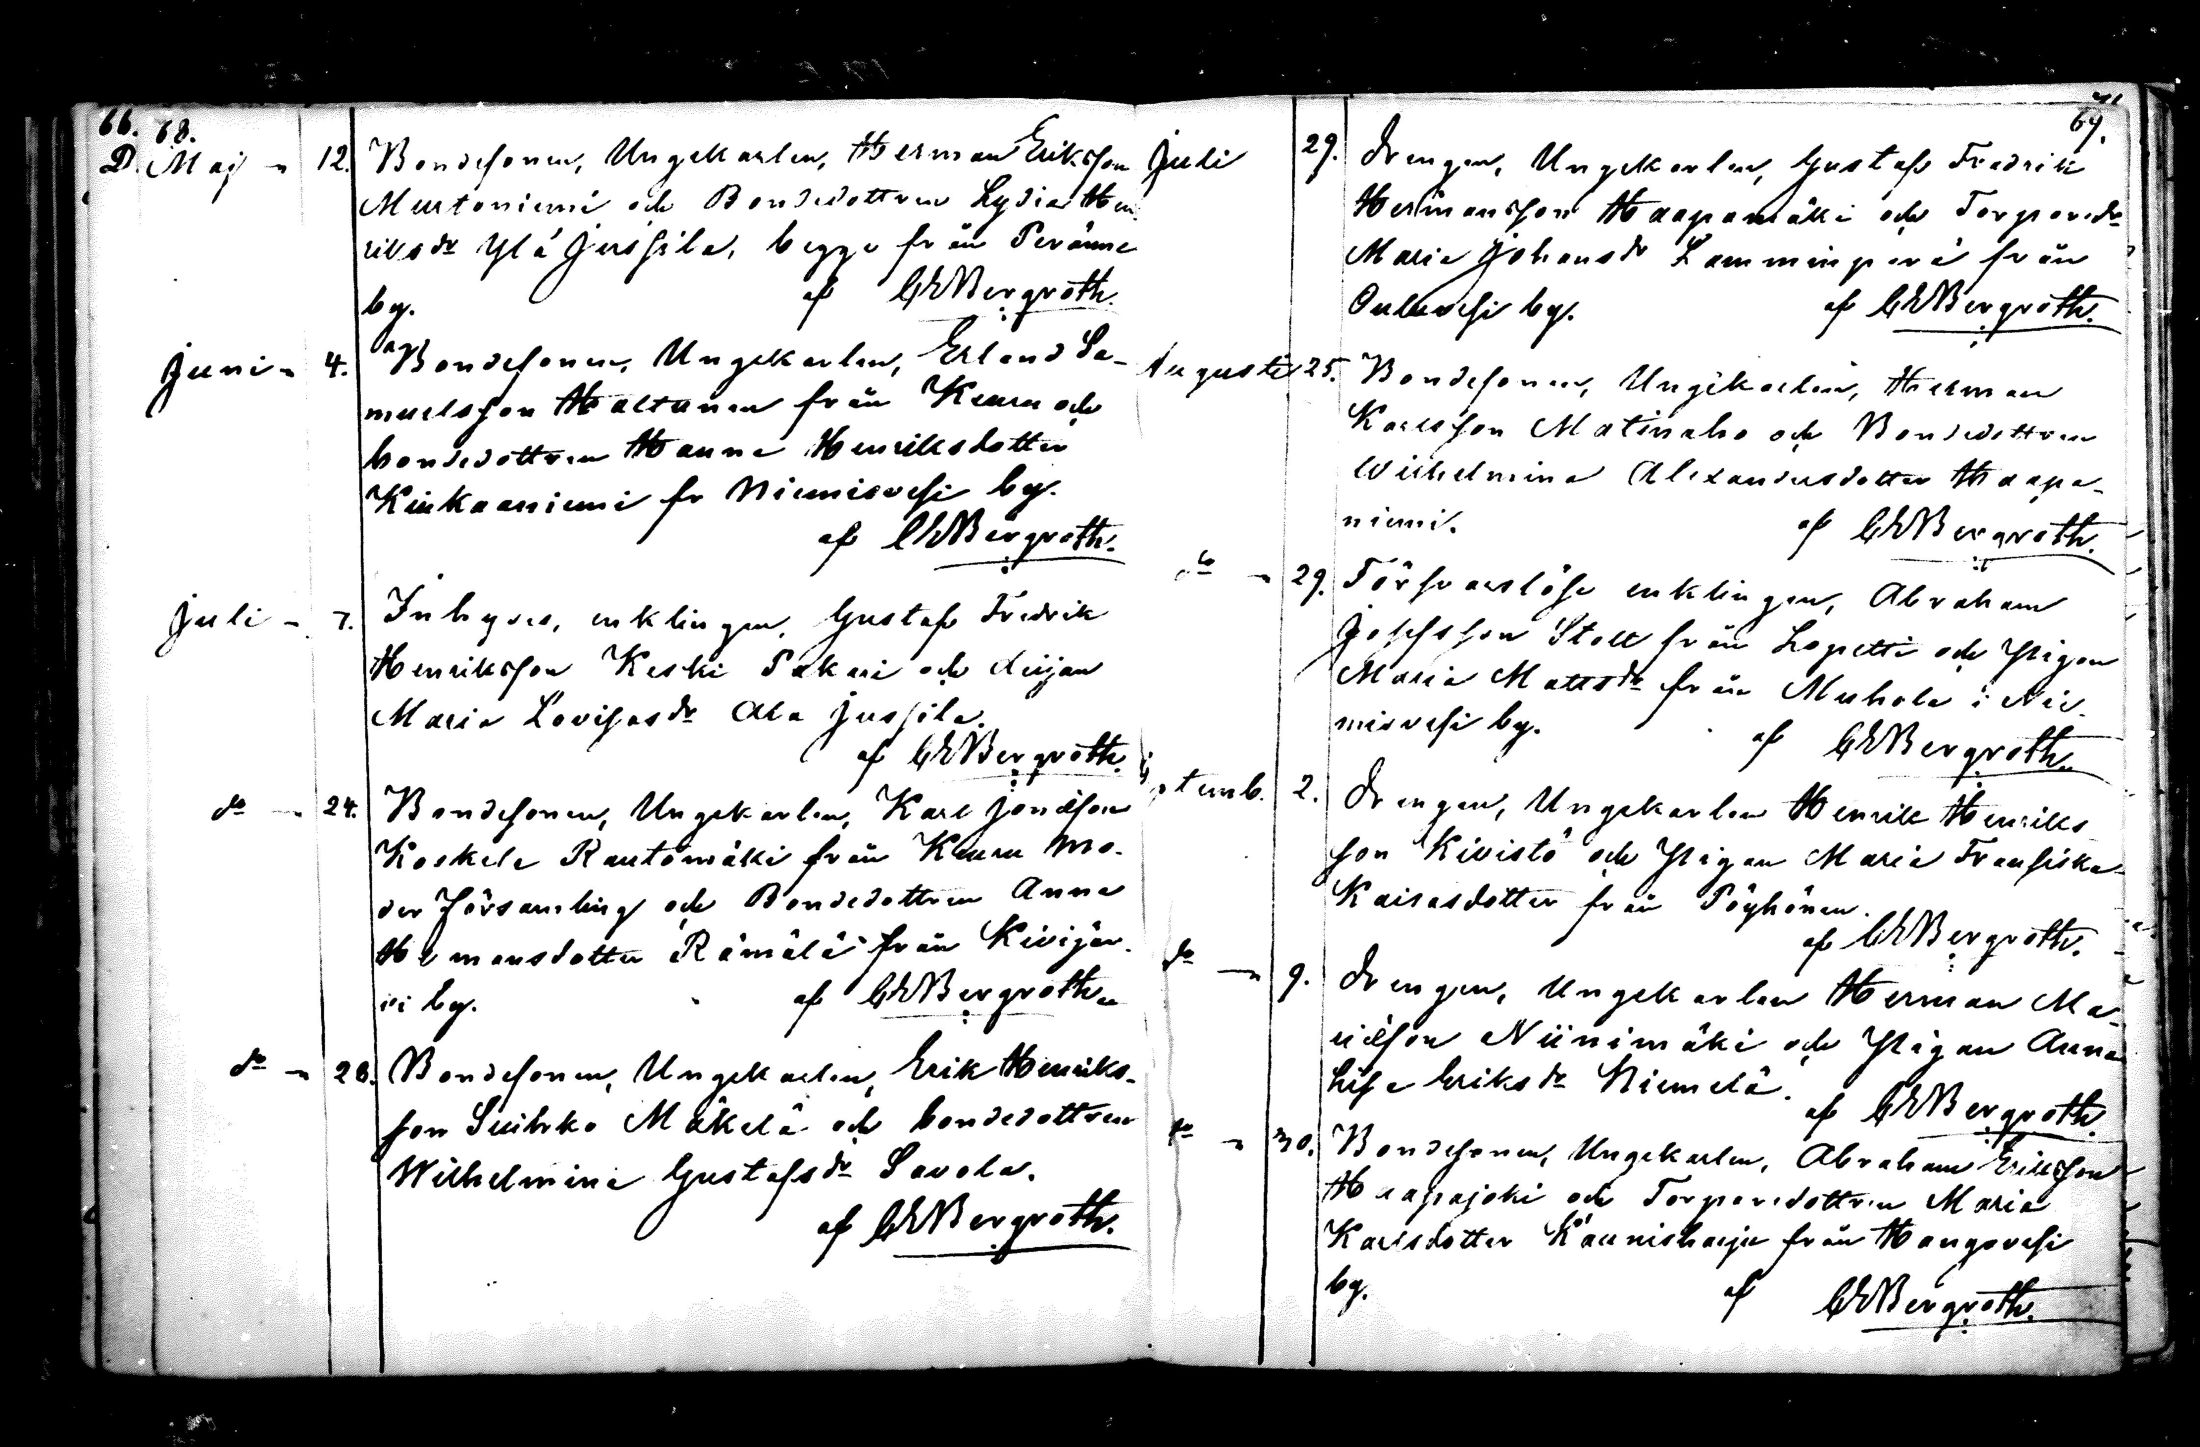 66. 68.
D. Maj - 12. Bondesonen, Ungekarlen, Herman Eriksson
Mustoniemi och Bondedottren Lydia Hen
riksdr Ylä Jussila, begge från Peränne
by. af CEBergroth.
Juni - 4. Bondesonen, Ungekarlen, Erland Sa-
muelsson Haltunen från Keuru och
bondedottren Hanna Henriksdotter
Kiukaaniemi fr Niemisvesi by.
af CEBergroth.
Juli - 7. Inhyses, enklingen, Gustaf Fredrik
Henriksson Keski Pakari och Pigan
Maria Lovisasdr Ala Jussila.
af CEBergroth.
do - 24. Bondesonen, Ungekarlen, Karl Jonasson
Koskela Rautamäki från Keuru Mo-
der församling och Bondedottren Anna
Hermansdotter Rämälä från Kivijär-
vi by. af CEBergroth.
do - 28. Bondesonen, Ungekarlen, Erik Henriks-
son Suihko Mäkelä och bondedottren
Wilhelmina Gustafsdr Savola.
af CEBergroth.
69.
Juli 29. Drengen, Ungekarlen, Gustaf Fredrik
Hermansson Haapamäki och Torparedr
Maria Johansdr Lamminperä från
Ouluvesi by. af CEBergroth.
Augusti 25. Bondesonen, Ungekarlen, Herman
Karlsson Matinaho och Bondedottren
Wilhelmina Alexandersdotter Haapa-
niemi. af CEBergroth.
do - 29. Försvarslöse enklingen, Abraham
Josefsson Stoll från Lopetti och Pigan
Maria Mattsdr från Muhola i Nie-
misvesi by. af CEBergroth.
Septemb. 2. Drengen, Ungekarlen Henrik Henriks-
son Kivistö och Pigan Maria Fransiska
Kaisasdotter från Pöyhönen.
af CEBergroth.
do - 9. Drengen, Ungekarlen Herman Ma-
riasson Niinimäki och Pigan Anna
Lisa Eriksdr Niemelä.
af CEBergroth.
do - 30. Bondesonen, Ungekarlen, Abraham Eriksson
Haapajoki och Torparedottren Maria
Karlsdotter Kaunisharju från Hangovesi
by. af CEBergroth.